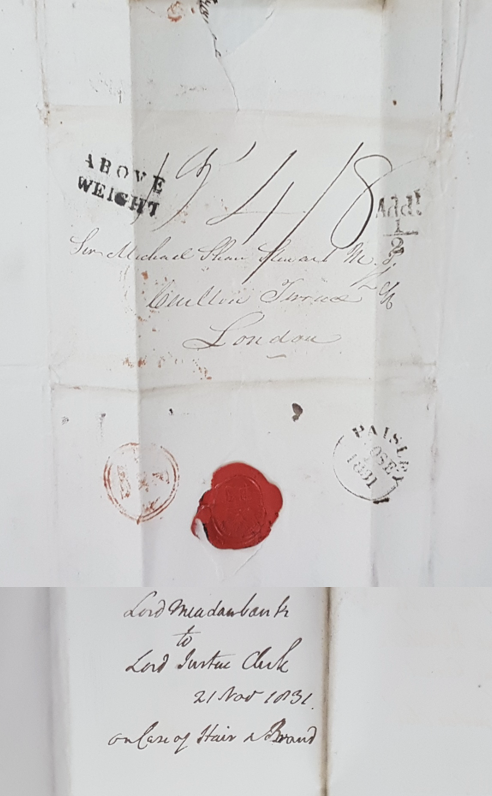 ABOVE
WEIGHT
4/8
Addl
1
2
Sir Michael Shaw Stewart M.P.
Carlton Terrace
London
PAISLEY
1831
Lord Meadowbank
to
Lord Justice Clerk
21 Nov 1831.
on Case of Hair a Brand